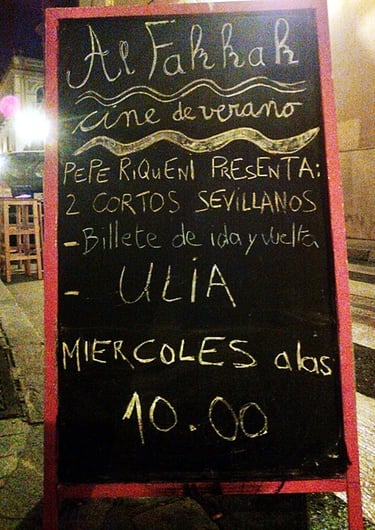 Al Fakkak
cine de verano
PEPE RIQUENI PRESENTA:
2 CORTOS SEVILLANOS
- Billete de ida y vuelta
- ULIA
MIERCOLES a las
10.00